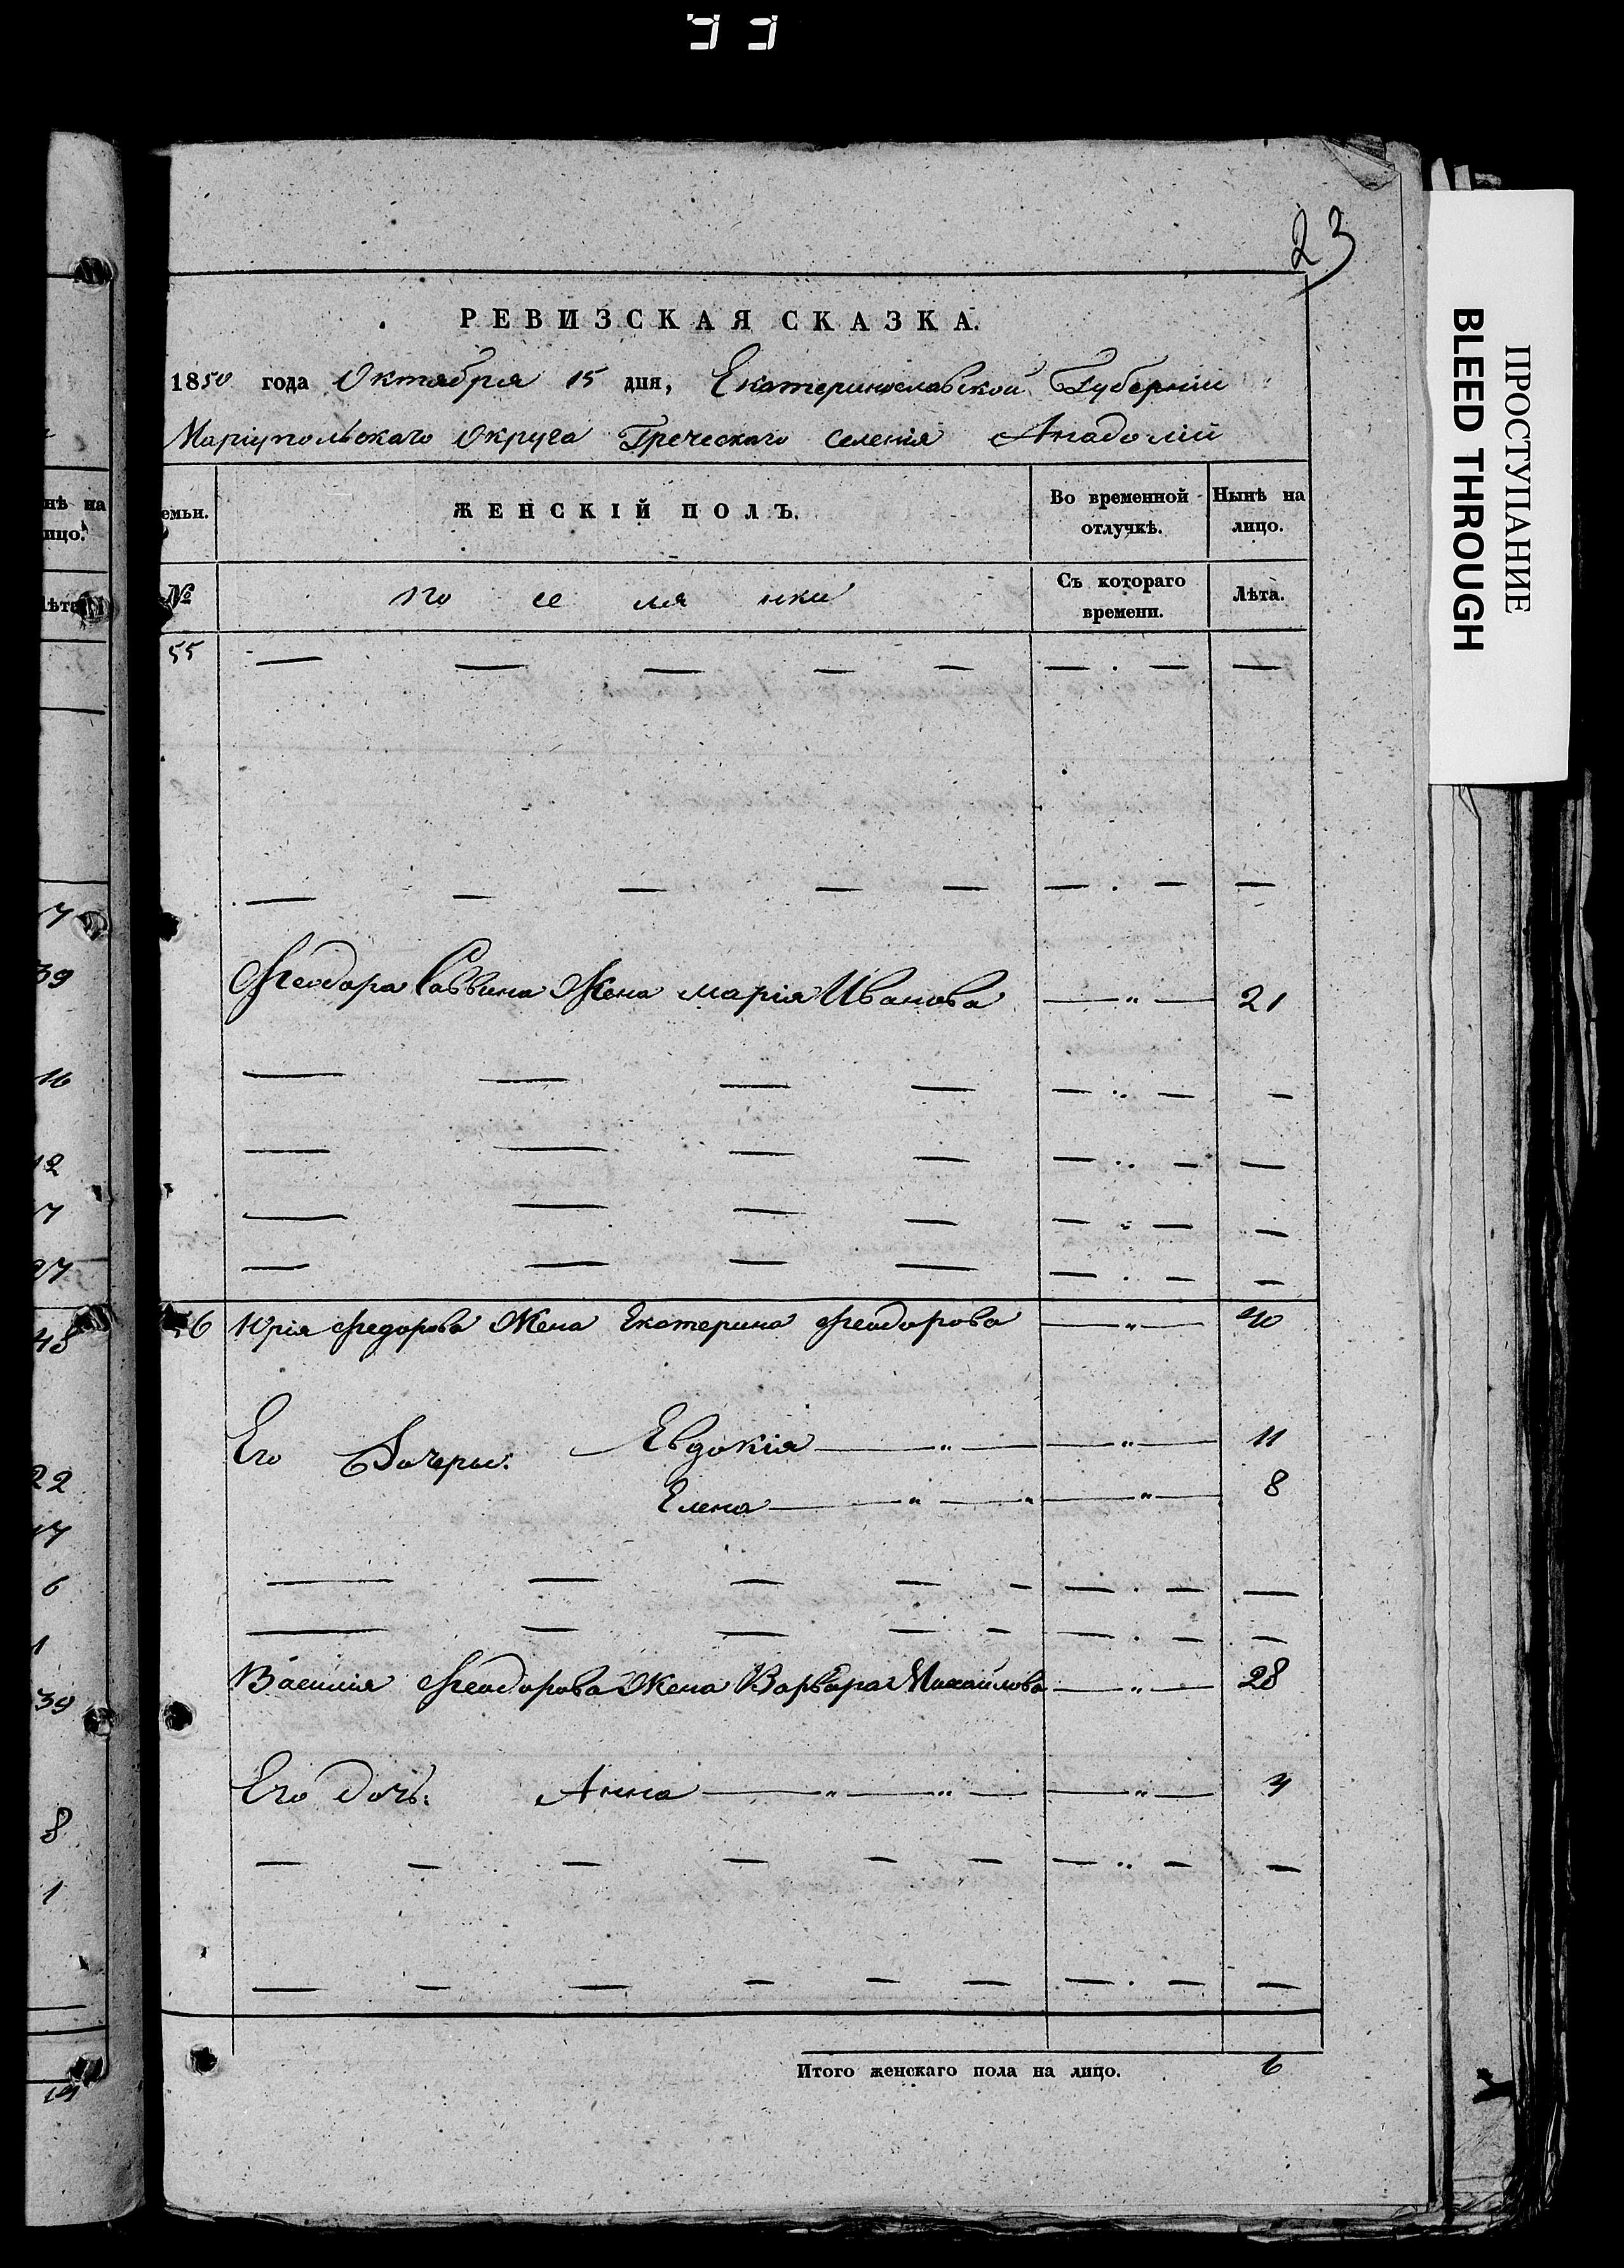 23
РЕВИЗСКАЯ СКАЗКА.
1850 года Октября 15 дня, Екатеринославской Губерніи
Маріупольскаго Округа Греческаго селенія Анадоліи
нѣ на
ицо.
ѣта
емьи.
ЖЕНСКІЙ ПОЛЪ.
Во временной отлучкѣ.
Нынѣ на лицо.
№
по се ля нки
Съ котораго времени.
Лѣта.
55
Феодора Саввина Жена Марія Иванова — " — 21
56 Юрія Федорова Жена Екатерина Феодорова — " — 40
Его Дочеры: Евдокія — " — — " — 11
Елена — " — " — " — 8
Василія Феодорова Жена Варвара Михайлова — " — 28
Его дочь: Анна — " — " — — " — 4
Итого женскаго пола на лицо. 6
7
39
16
12
7
27
48
22
17
6
1
39
8
1
ПРОСТУПАНИЕ
BLEED THROUGH